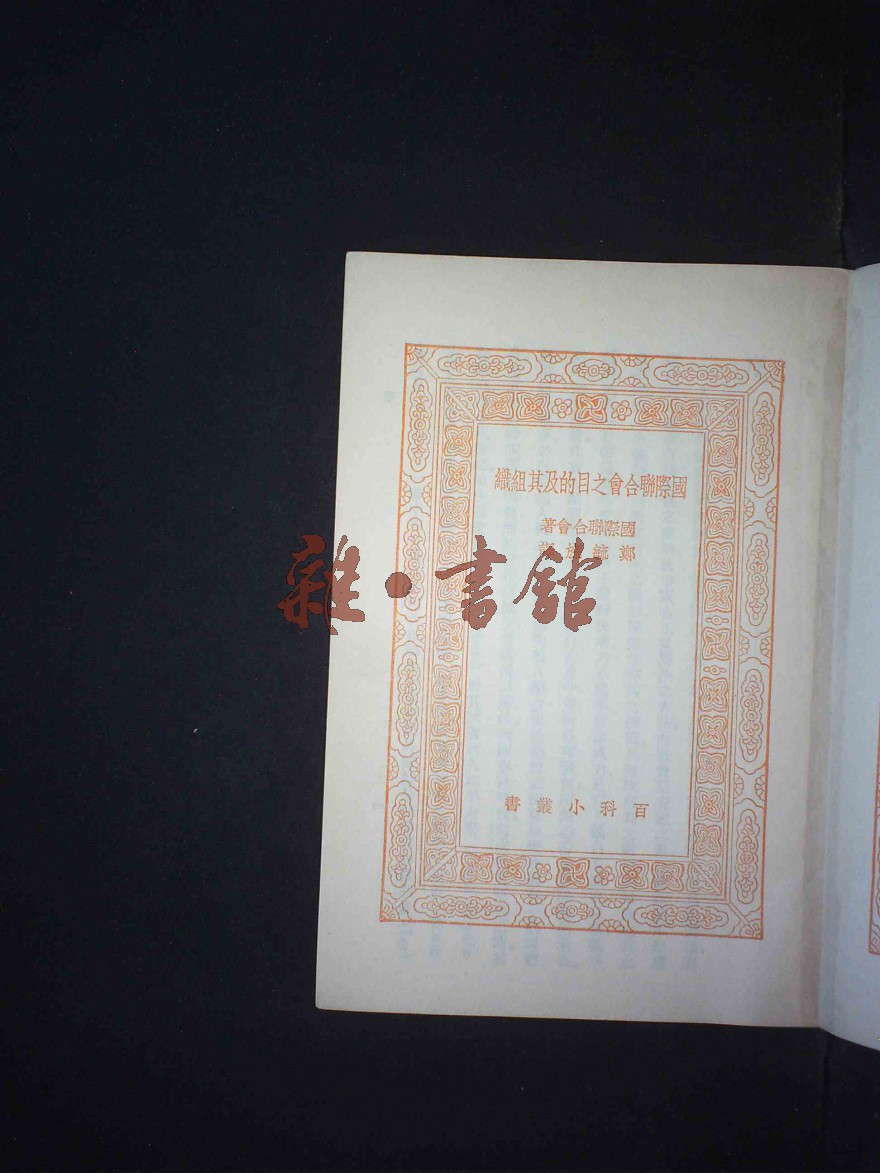 國際聯合會之目的及其組織
國際聯合會著
鄭毓
百科小叢書
雜·書館